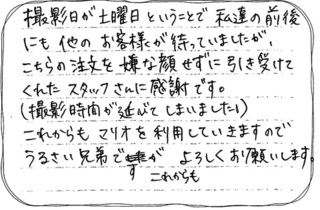 撮影日が土曜日ということで私達の前後
にも他のお客様が待っていましたが、
こちらの注文を嫌な顔せずに引き受けて
くれたスタッフさんに感謝です。
(撮影時間が延びてしまいました!)
これからもマリオを利用していきますので
うるさい兄弟ですが よろしくお願いします。
これからも